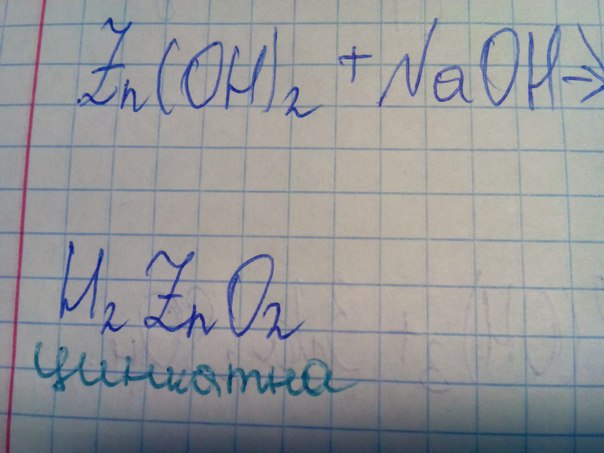 Zn(OH)₂ + NaOH →
H₂ZnO₂
цинкатна